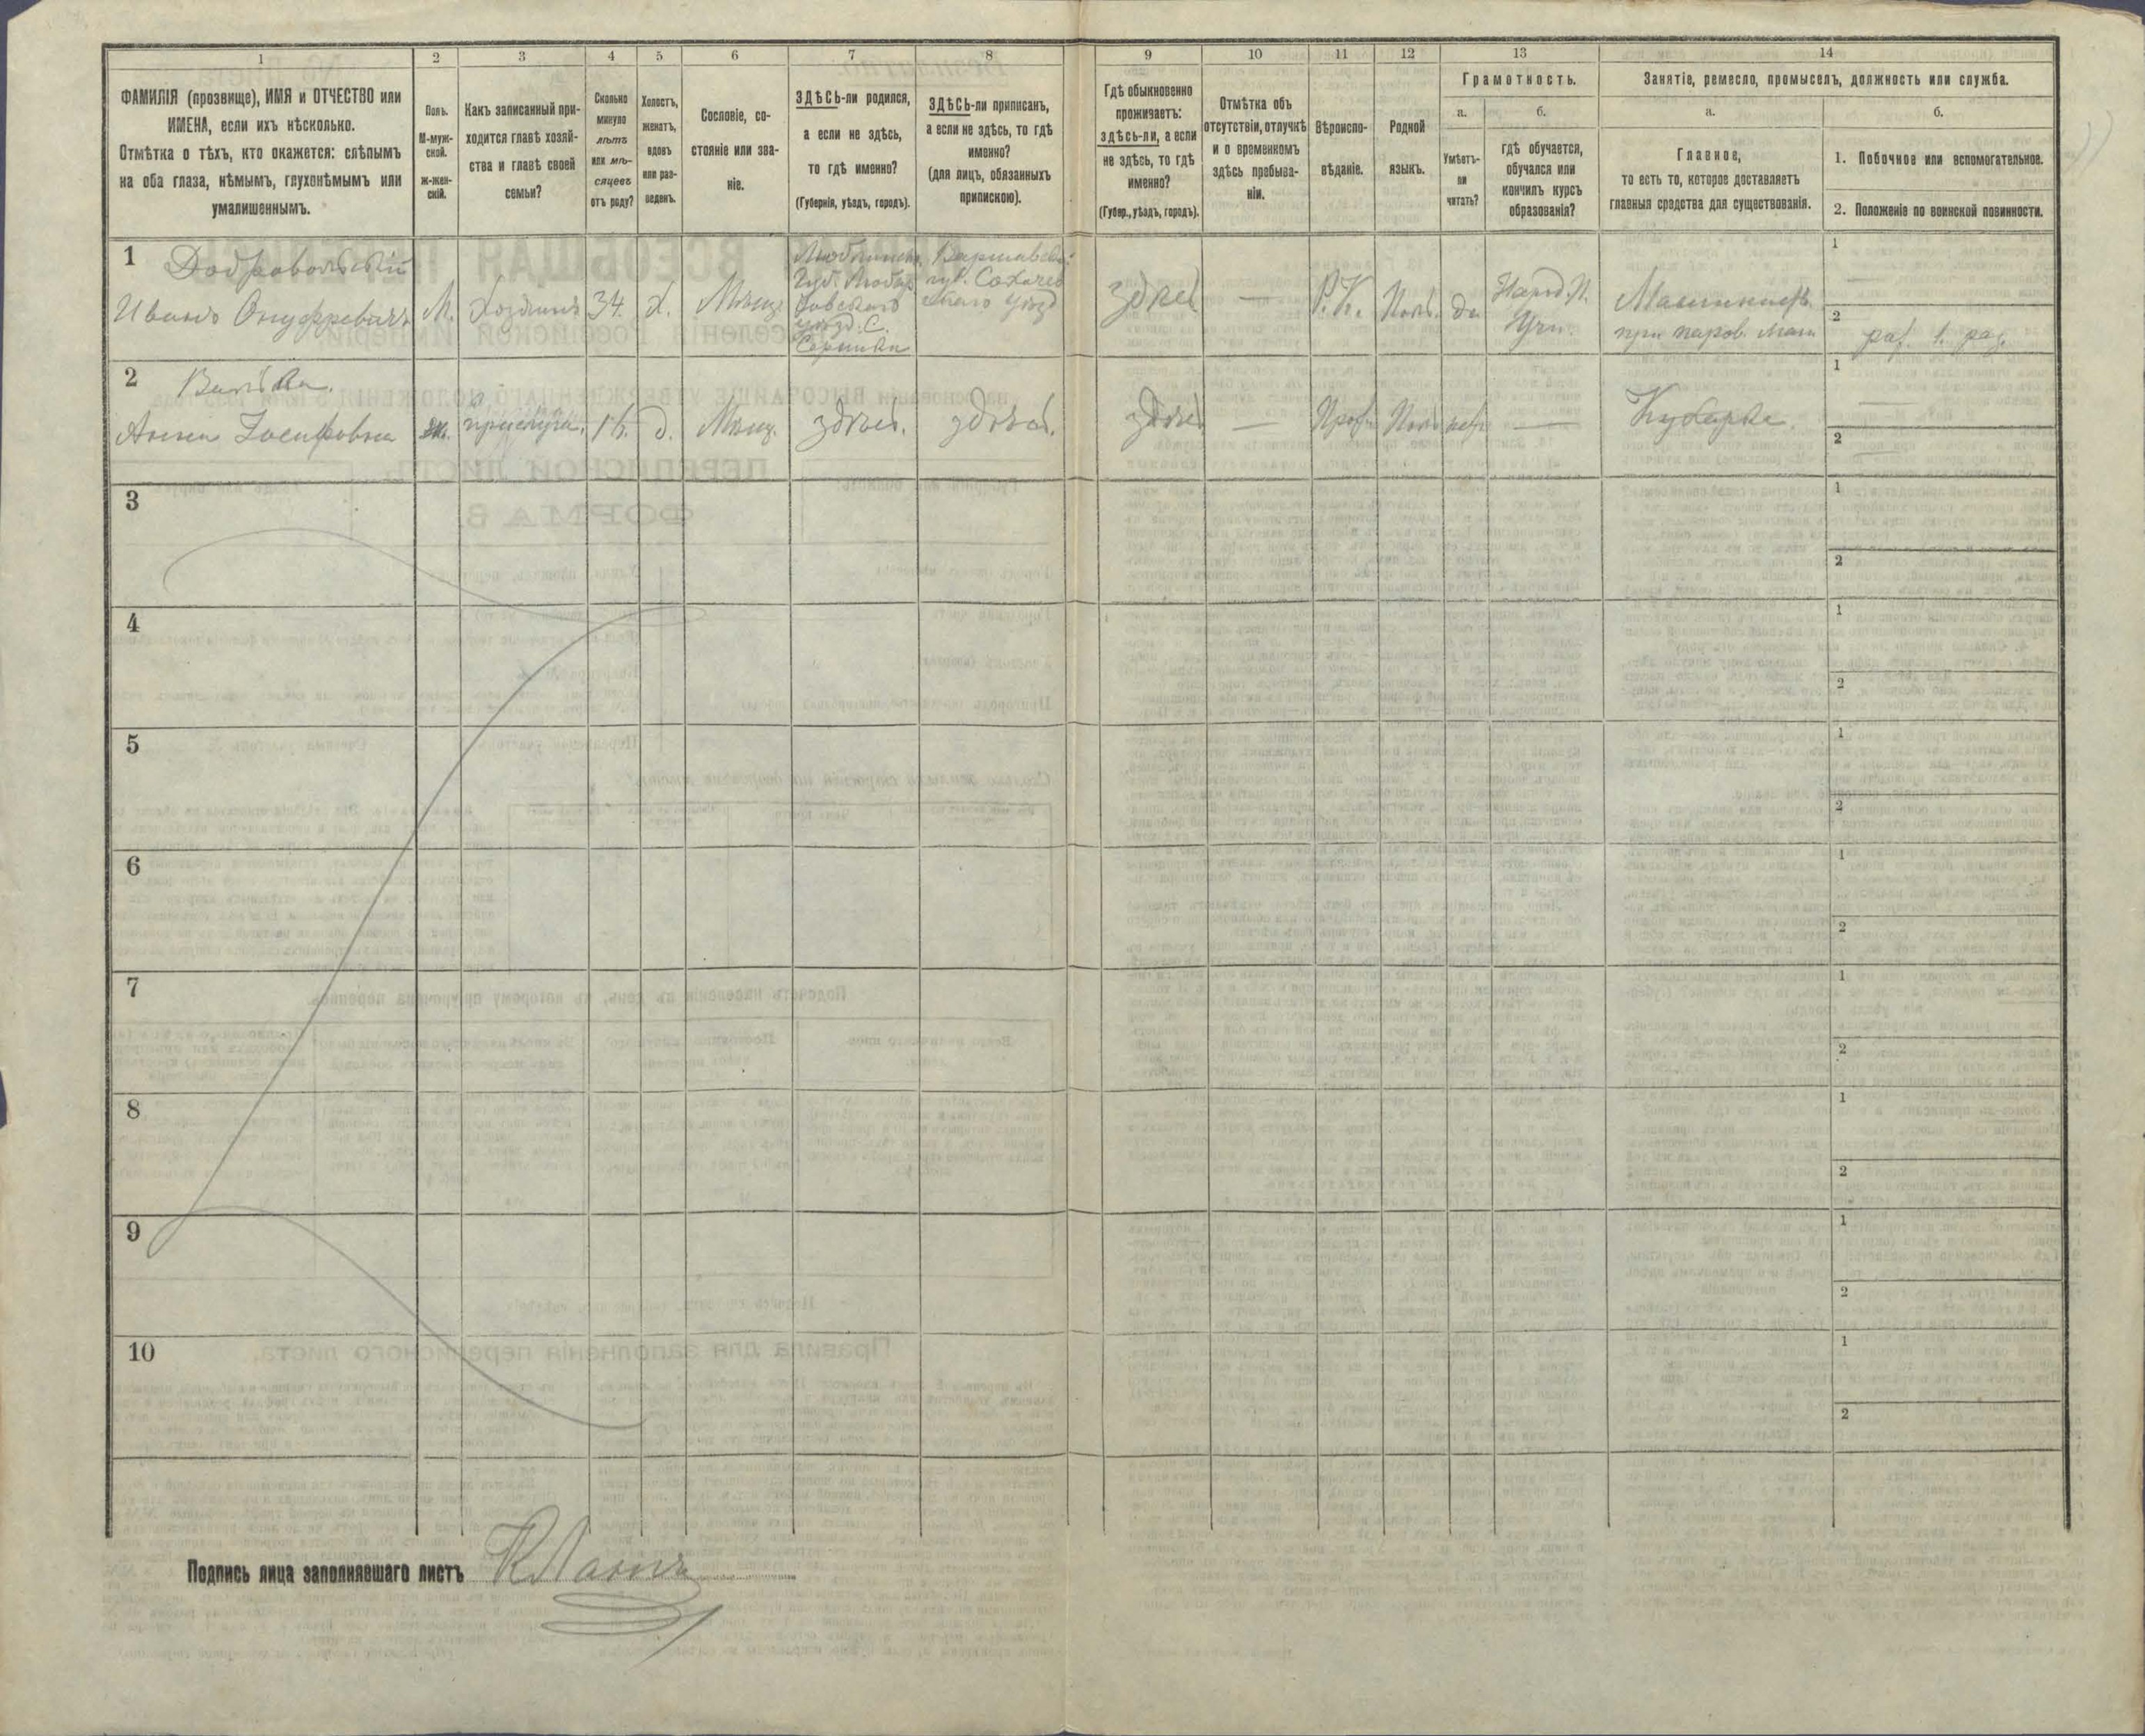 1
2
3
4
5
6
7
8
9
10
11
12
13
14
ФАМИЛІЯ (прозвище), ИМЯ и ОТЧЕСТВО или
ИМЕНА, если ихъ нѣсколько.
Отмѣтка о тѣхъ, кто окажется: слѣпымъ
на оба глаза, нѣмымъ, глухонѣмымъ или
умалишеннымъ.
Полъ.
М-муж-
ской.
Ж-жен-
скій.
Какъ записанный при-
ходится главѣ хозяй-
ства и главѣ своей
семьи?
Сколько
минуло
лѣтъ
или мѣ-
сяцевъ
отъ роду?
Холостъ,
женатъ,
вдовъ
или раз-
веденъ.
Сословіе, со-
стояніе или зва-
ніе.
ЗДѢСЬ-ли родился,
а если не здѣсь,
то гдѣ именно?
(Губернія, уѣздъ, городъ).
ЗДѢСЬ-ли приписанъ,
а если не здѣсь, то гдѣ
именно?
(для лицъ, обязанныхъ
припискою).
Гдѣ обыкновенно
проживаетъ:
здѣсь-ли, а если
не здѣсь, то гдѣ
именно?
(Губер., уѣздъ, городъ).
Отмѣтка объ
отсутствіи, отлучкѣ
и о временномъ
здѣсь пребыва-
ніи.
Вѣроиспо-
вѣданіе.
Родной
языкъ.
Грамотность.
а.
Умѣетъ-
ли
читать?
б.
гдѣ обучается,
обучался или
кончилъ курсъ
образованія?
Занятіе, ремесло, промыселъ, должность или служба.
а.
Главное,
то есть то, которое доставляетъ
главныя средства для существованія.
б.
1. Побочное или вспомогательное.
2. Положеніе по воинской повинности.
1
Добровольскій
Иванъ Онуфревичъ
М.
Хозяинъ
34.
Х.
Мѣщ.
Губ.
уѣзд. С.
Варшавск.
губ. Сохачев
скаго уѣзд
здѣсь
—
Р.К.
Поль.
да
Народ.
Учи.
Машинистъ
при паров. маш.
1
—
2
1. раз.
2
Анна Іосифовна
ж.
прислуга.
16.
д.
Мѣщ.
здѣсь.
здѣсь.
здѣсь
—
Поль
—
Кухарка.
1
—
2
—
3
1
2
4
1
2
5
1
2
6
1
2
7
1
2
8
1
2
9
1
2
10
1
2
Подпись лица заполнявшаго листъ